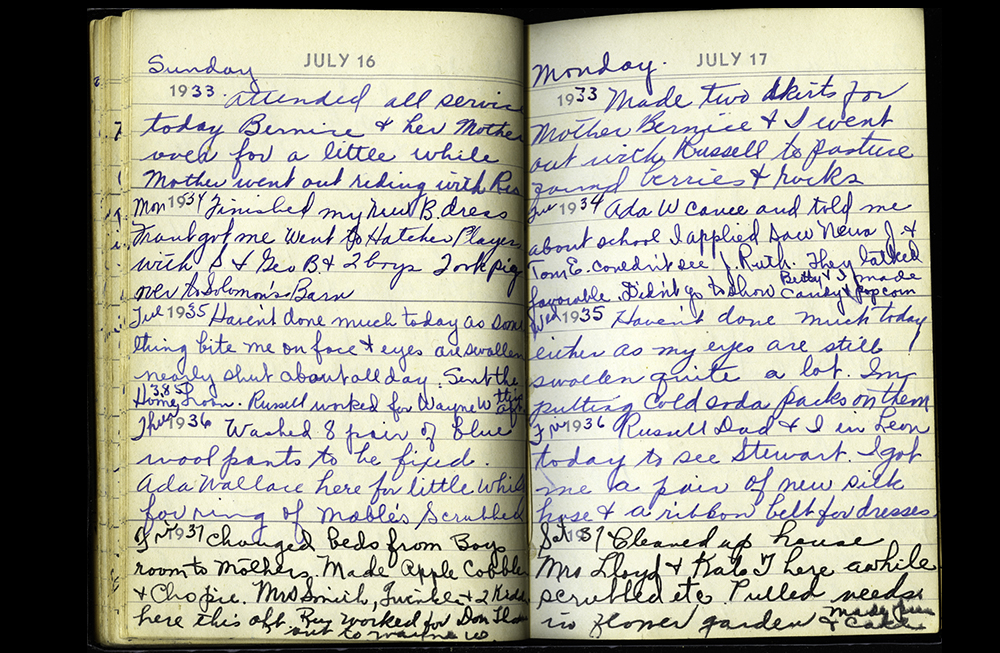 Sunday JULY 16
1933. attended all servic
today Bernice & her Mother
over for a little while
Mother went out riding with Rus
Mon 1934 Finished my new B. dress
Frank got me Went to Hatcher Players
with S & Geo B. & 2 boys Took pig
over to Solomon's Barn
Tue 1935 Haven't done much today as some
thing bite me on face & eyes are swollen
nearly shut about all day. Sent the
Home Loan. 3.85 Russell worked for Wayne W this
Thur 1936 Washed 8 pair of blue
wool pants to be fixed.
Ada Wallace here for little while
for ring of Mable's Scrubbed
Fri 1937 Changed beds from Boys
room to Mothers. Made Apple Cobbler
& Cho pie. Mrs Smith, & 2 Kidd
here this aft. Roy worked for Don
out to Wayne W.
Monday. JULY 17
1933 Made two skirts for
Mother Bernice & I went
out with Russell to pasture
found berries & rocks
Tue 1934 Ada W came and told me
about school I applied Saw Neva J. &
Tom E. couldn't see J. Ruth. They talked
favorable. Didn't go to show Betty & I made
candy & popcorn
Wed 1935 Haven't done much today
either as my eyes are still
swollen quite a lot. Im
putting cold soda packs on them
Fri 1936 Russell Dad & I in Leon
today to see Stewart. I got
me a pair of new silk
hose & a ribbon belt for dresses
Sat 1937 Cleaned up house
Mrs Lloyd & Kate T here awhile
scrubbed etc Pulled weeds
in flower garden & made
cake